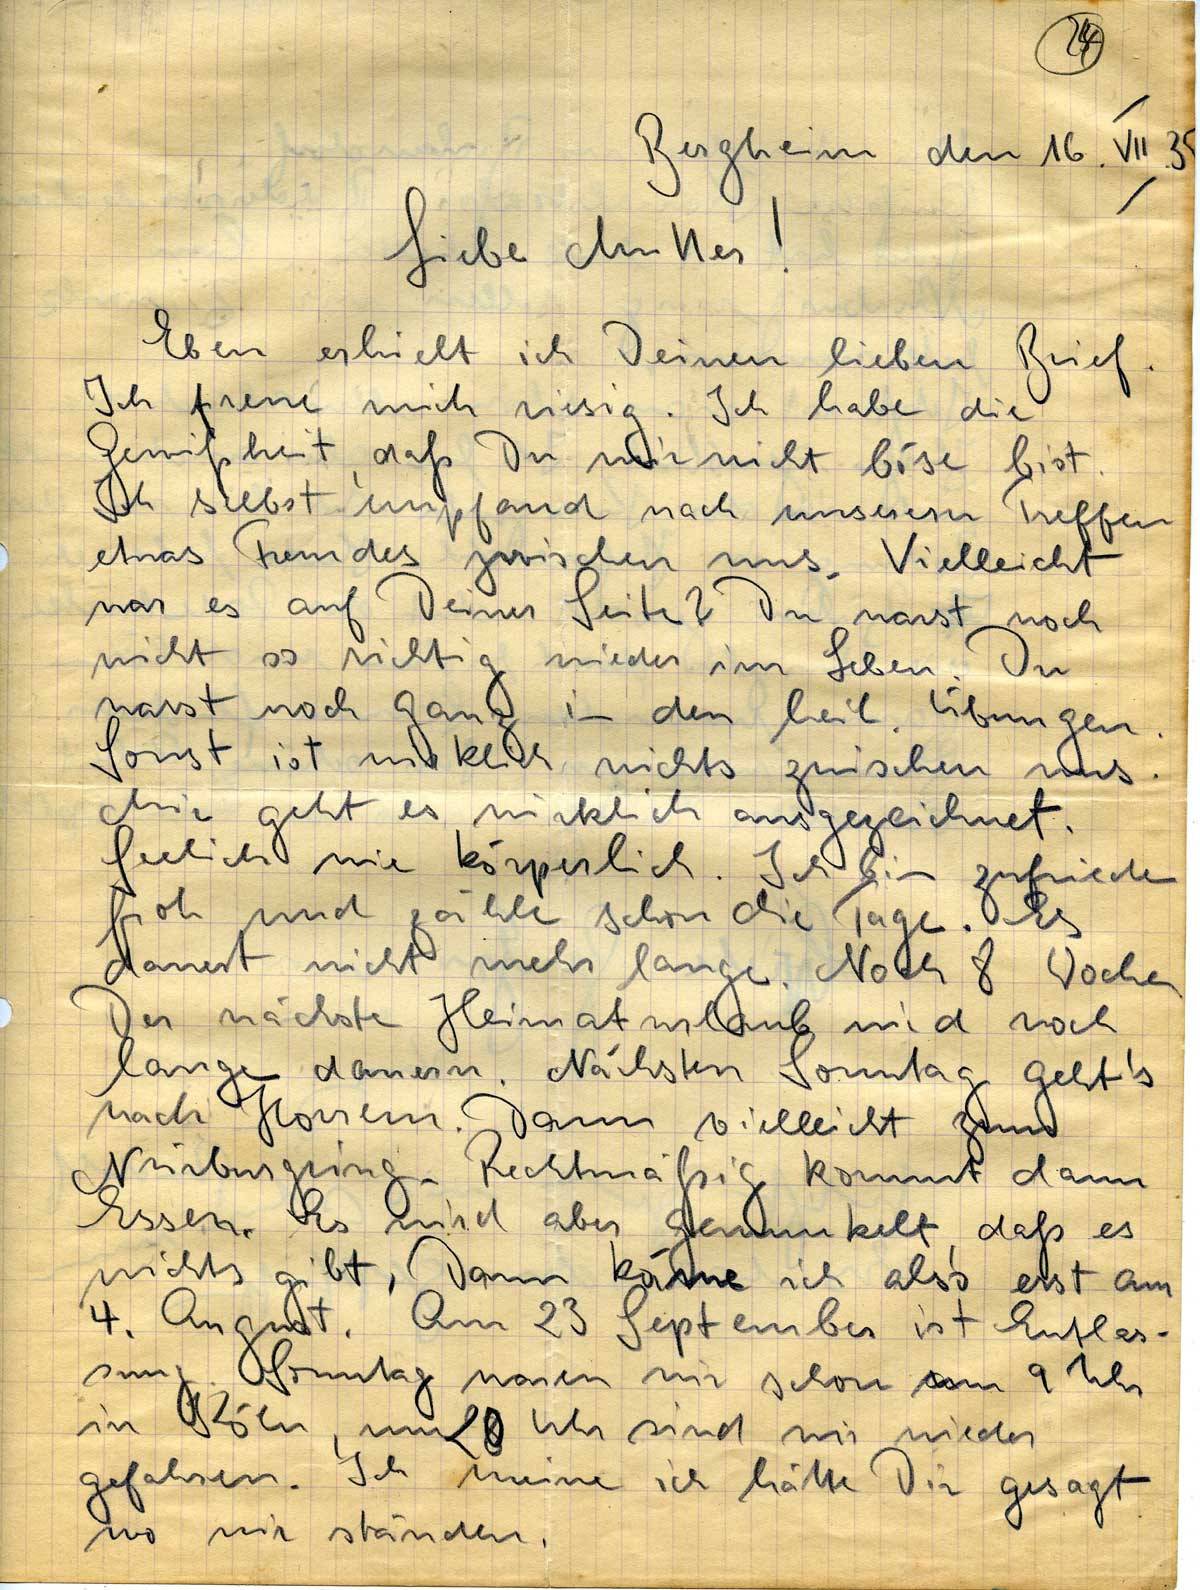 24
Bergheim den 16. VII. 35
Liebe Mutter!
Eben erhielt ich Deinen lieben Brief.
Ich freue mich riesig. Ich habe die
Gewißheit, daß Du mir nicht böse bist.
Ich selbst empfand nach unserem Treffen
etwas Fremdes zwischen uns. Vielleicht
war es auf Deiner Seite? Du warst noch
nicht so richtig wieder im Leben. Du
warst noch ganz in den heil. Übungen.
Sonst ist wirklich nichts zwischen uns.
Mir geht es wirklich ausgezeichnet.
Seelich wie körperlich. Ich bin zufriede
froh und zähle schon die Tage. Es
dauert nicht mehr lange. Noch 8 Wochen
Der nächste Heimaturlaub wird noch
lange dauern. Nächsten Sonntag geht's
nach Horrem. Dann vielleicht zum
Nürburgring. Rechtmäßig kommt dann
Essen. Es wird aber gemunkelt, daß es
nichts gibt. Dann käme ich also erst am
4. August. Am 23 September ist Entlas-
sung. Sonntag waren wir schon um 9 Uhr
in Köln, um 20 Uhr sind wir wieder
gefahren. Ich meine ich hätte Dir gesagt
wo wir ständen.